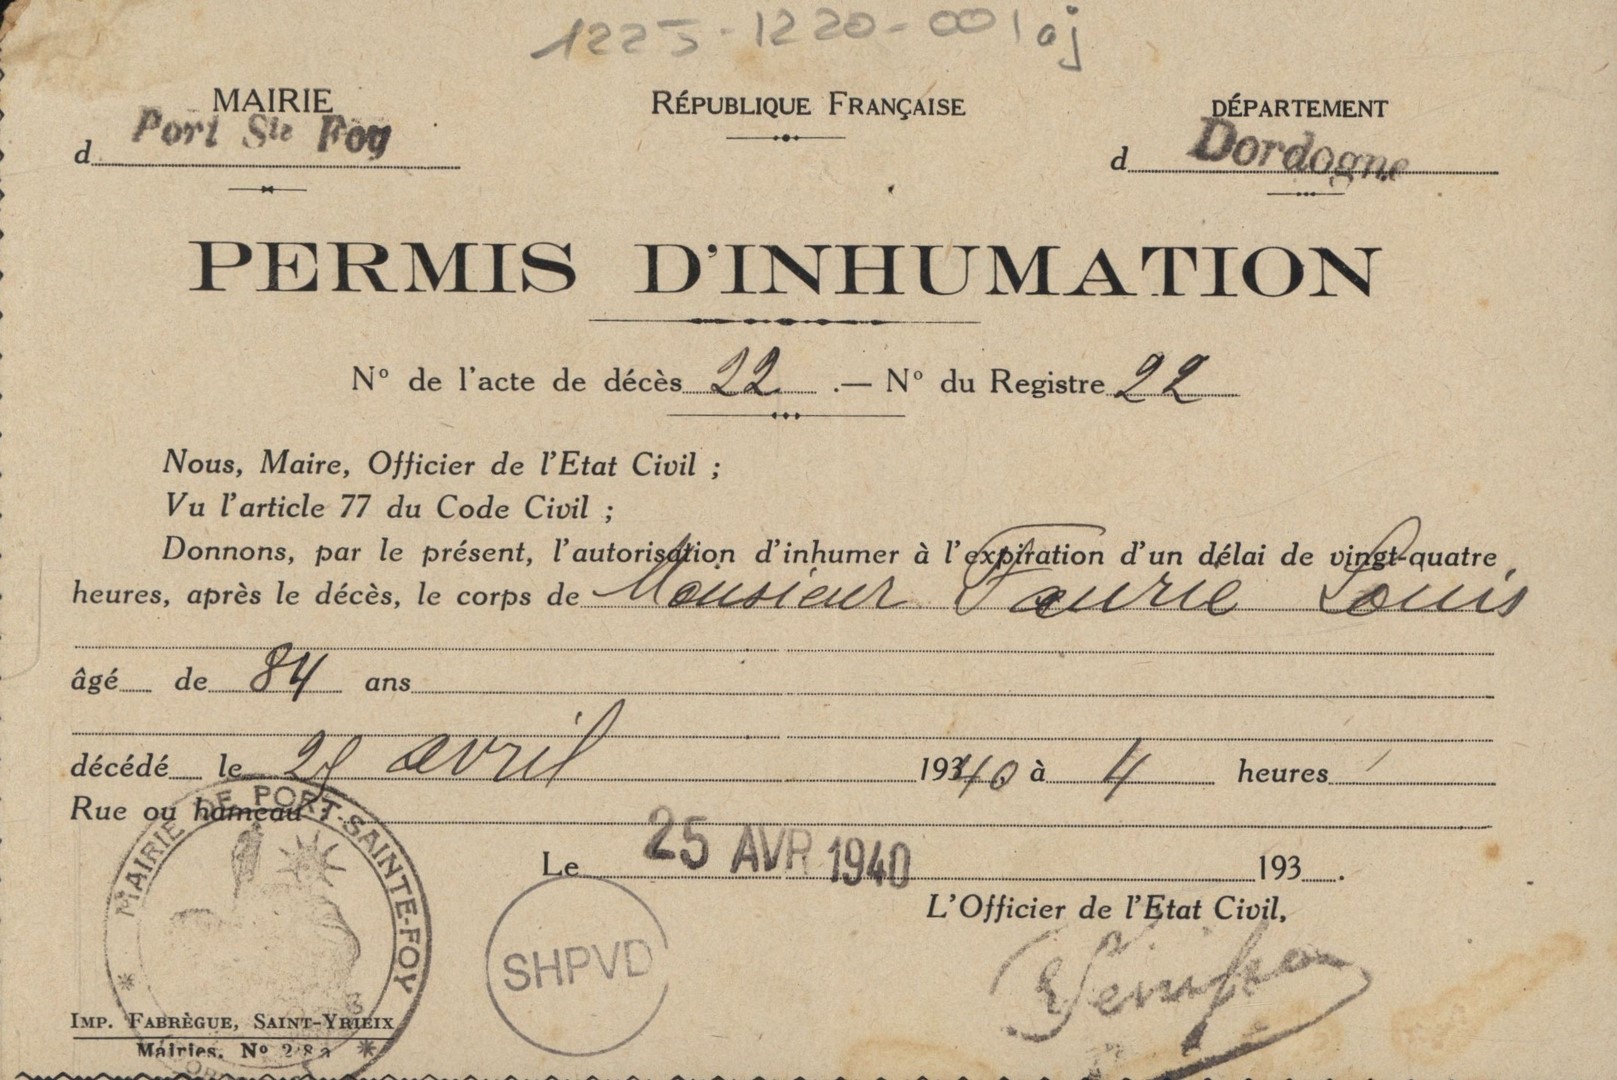 1225-1220-001aj
MAIRIE
RÉPUBLIQUE FRANÇAISE
DÉPARTEMENT
d Port Ste Foy
d Dordogne
PERMIS D'INHUMATION
N° de l'acte de décès 22 .— N° du Registre 22
Nous, Maire, Officier de l'Etat Civil ;
Vu l'article 77 du Code Civil ;
Donnons, par le présent, l'autorisation d'inhumer à l'expiration d'un délai de vingt-quatre
heures, après le décès, le corps de Monsieur Faurie Louis
âgé de 84 ans
décédé le 25 avril 1940 à 4 heures
Rue ou hameau :
Le 25 AVR 1940 193 .
L'Officier de l'Etat Civil,
MAIRIE DE PORT-SAINTE-FOY
SHPVD
IMP. FABRÈGUE, SAINT-YRIEIX
Mairies. N° 28a